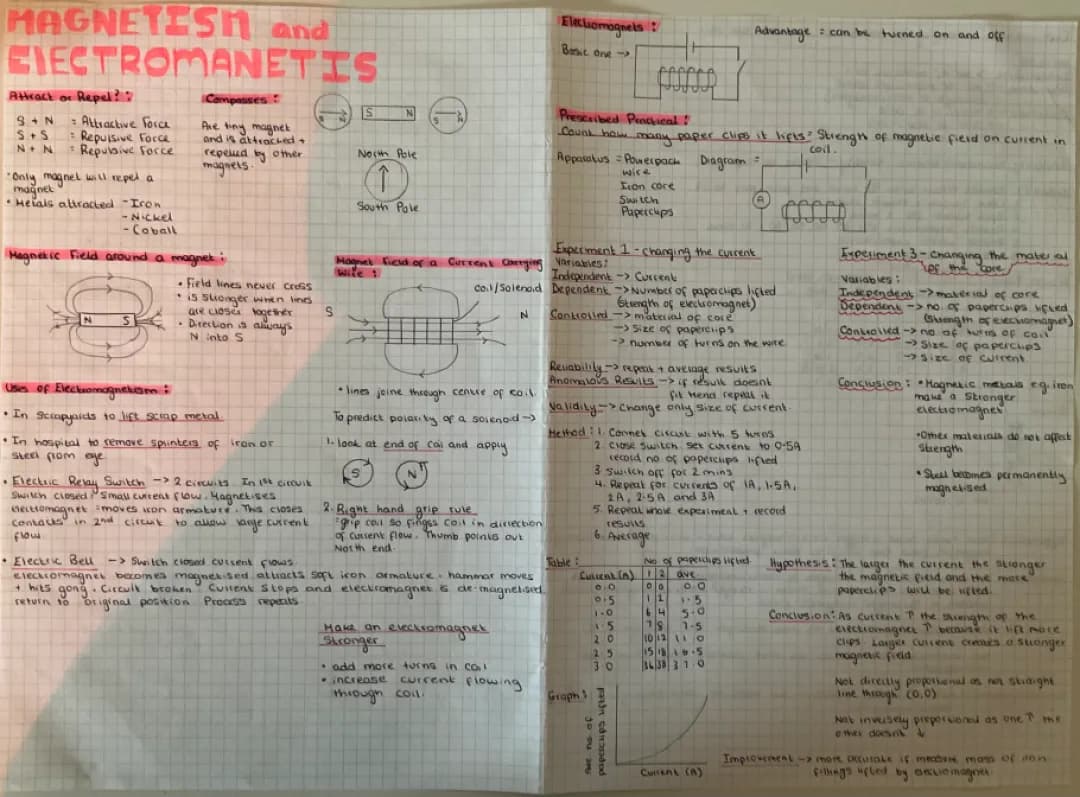 MAGNETISM and
ElECTROMANETIS
Attract or Repel?:
S + N = Attractive Force
S + S = Repulsive Force
N + N = Repulsive Force
• Only magnet will repel a
magnet
• Metals attracted - Iron
- Nickel
- Cobalt
Compasses:
Are tiny magnet
and is attracted +
repelled by other
magnets.
S N
S N
S N
North Pole
South Pole
Magnetic Field around a magnet:
N S
• Field lines never cross
• is stronger when lines
are closer together
• Direction is always
N into S
Magnet Field of a Current Carrying
Wire:
coil/Solenoid
S
N
• lines joine through centre of coil.
To predict polarity of a solenoid ->
1. look at end of coil and apply
S N
2. Right hand grip rule
grip coil so fingers coil in direction
of current flow. Thumb points out
North end.
Uses of Electromagnetism:
• In Scrapyards to lift scrap metal.
• In hospital to remove splinters of iron or
steel from eye.
• Electric Relay Switch -> 2 circuits. In 1st circuit
Switch closed small current flow. Magnetises
electromagnet = moves iron armature. This closes
contacts in 2nd circuit to allow large current
flow.
• Electric Bell -> Switch closed current flows.
electromagnet becomes magnetised attracts soft iron armature. hammar moves
+ hits gong. Circuit broken. Current Stops and electromagnet is de-magnetised
return to original position Process repeats.
Make an electromagnet
Stronger
• add more turns in coil
• increase current flowing
through coil.
Electomagnets:
Advantage = can be turned on and off
Basic one ->
Prescribed Practical:
Count how many paper clips it lifts = Strength of magnetic field on current in
coil.
Apparatus = Powerpack
wire
Iron core
Switch
Paperclips
Diagram =
A
Experiment 1 - changing the current
Variables:
Independent -> Current
Dependent -> Number of paperclips lifted
(Strength of electromagnet)
Controlled -> material of core
-> Size of paperclips
-> number of turns on the wire
Reliability -> repeat + average results
Anomalous Results -> if result doesnt
fit trend repeat it
Validity -> Change only size of current.
Method: 1. Connet circuit with 5 turns
2. Close switch. Set current to 0.5A
record no of paperclips lifted
3 Switch off for 2 mins
4. Repeat for currents of 1A, 1.5A,
2A, 2.5A and 3A
5. Repeat whole experiment + record
results.
6. Average
Experiment 3 - Changing the material
of the core
Variables:
Independent -> material of core
Dependent -> no. of paperclips lifted
(Strength of electromagnet)
Controlled -> no of turns of coil
-> Size of paperclips
-> size of current
Conclusion: • Magnetic metals e.g. iron
make a stronger
electromagnet
• Other materials do not affect
strength
• Steel becomes permanently
magnetised
Table:
No. of paperclips lifted.
Current (A) 1 2 ave
0.0 0 0 0.0
0.5 1 2 1.5
1.0 6 4 5.0
1.5 7 8 7.5
2.0 10 12 11.0
2.5 15 18 16.5
3.0 36 38 37.0
Hypothesis: The larger the current the stronger
the magnetic field and the more
paperclips will be lifted.
Conclusion: As current ↑ the strength of the
electromagnet ↑ because it lift more
clips. Larger current creates a stronger
magnetic field.
Not directly proportional as not straight
line through (0,0)
Not inversely proportional as one ↑ the
other doesnt ↓
Graph:
Ave no. of
paperclips lifted
Current (A)
Improvement -> more accurate if measure mass of iron
fillings lifted by electromagnet.